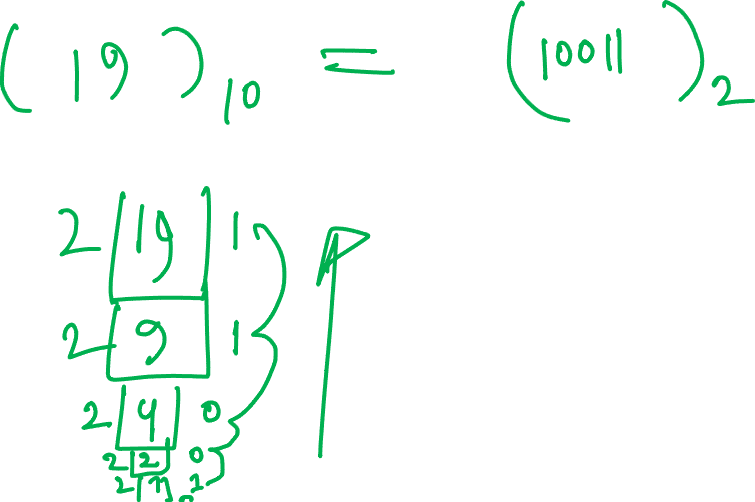 (19)10 = (10011)2
2 19 1
2 9 1
2 4 0
2 2 0
2 1 1